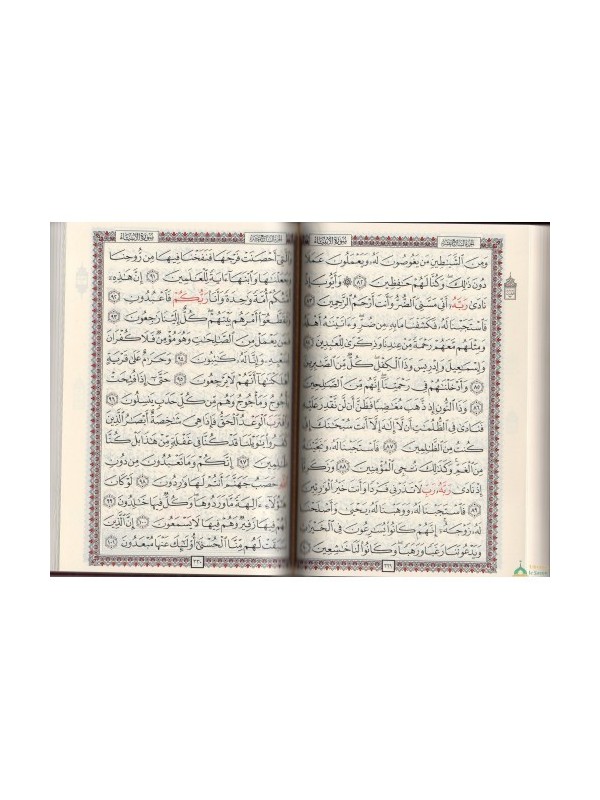 سورة الأنبياء
وَمِنَ ٱلشَّيَٰطِينِ مَن يَغُوصُونَ لَهُۥ وَيَعْمَلُونَ عَمَلًا
دُونَ ذَٰلِكَۖ وَكُنَّا لَهُمْ حَٰفِظِينَ ٨٢ ۞ وَأَيُّوبَ إِذْ
نَادَىٰ رَبَّهُۥٓ أَنِّي مَسَّنِيَ ٱلضُّرُّ وَأَنتَ أَرْحَمُ ٱلرَّٰحِمِينَ ٨٣
فَٱسْتَجَبْنَا لَهُۥ فَكَشَفْنَا مَا بِهِۦ مِن ضُرٍّۖ وَءَاتَيْنَٰهُ أَهْلَهُۥ
وَمِثْلَهُم مَّعَهُمْ رَحْمَةً مِّنْ عِندِنَا وَذِكْرَىٰ لِلْعَٰبِدِينَ ٨٤
وَإِسْمَٰعِيلَ وَإِدْرِيسَ وَذَا ٱلْكِفْلِۖ كُلٌّ مِّنَ ٱلصَّٰبِرِينَ
٨٥ وَأَدْخَلْنَٰهُمْ فِي رَحْمَتِنَآۖ إِنَّهُم مِّنَ ٱلصَّٰلِحِينَ
٨٦ وَذَا ٱلنُّونِ إِذ ذَّهَبَ مُغَٰضِبًا فَظَنَّ أَن لَّن نَّقْدِرَ عَلَيْهِ
فَنَادَىٰ فِي ٱلظُّلُمَٰتِ أَن لَّآ إِلَٰهَ إِلَّآ أَنتَ سُبْحَٰنَكَ إِنِّي
كُنتُ مِنَ ٱلظَّٰلِمِينَ ٨٧ فَٱسْتَجَبْنَا لَهُۥ وَنَجَّيْنَٰهُ
مِنَ ٱلْغَمِّۚ وَكَذَٰلِكَ نُـۨجِي ٱلْمُؤْمِنِينَ ٨٨ وَزَكَرِيَّآ
إِذْ نَادَىٰ رَبَّهُۥ رَبِّ لَا تَذَرْنِي فَرْدًا وَأَنتَ خَيْرُ ٱلْوَٰرِثِينَ
٨٩ فَٱسْتَجَبْنَا لَهُۥ وَوَهَبْنَا لَهُۥ يَحْيَىٰ وَأَصْلَحْنَا
لَهُۥ زَوْجَهُۥٓۚ إِنَّهُمْ كَانُوا۟ يُسَٰرِعُونَ فِي ٱلْخَيْرَٰتِ
وَيَدْعُونَنَا رَغَبًا وَرَهَبًاۖ وَكَانُوا۟ لَنَا خَٰشِعِينَ ٩٠
٣٢٩
سورة الأنبياء
وَٱلَّتِيٓ أَحْصَنَتْ فَرْجَهَا فَنَفَخْنَا فِيهَا مِن رُّوحِنَا
وَجَعَلْنَٰهَا وَٱبْنَهَآ ءَايَةً لِّلْعَٰلَمِينَ ٩١ إِنَّ هَٰذِهِۦٓ
أُمَّتُكُمْ أُمَّةً وَٰحِدَةً وَأَنَا۠ رَبُّكُمْ فَٱعْبُدُونِ ٩٢
وَتَقَطَّعُوٓا۟ أَمْرَهُم بَيْنَهُمْۖ كُلٌّ إِلَيْنَا رَٰجِعُونَ ٩٣
فَمَن يَعْمَلْ مِنَ ٱلصَّٰلِحَٰتِ وَهُوَ مُؤْمِنٌ فَلَا كُفْرَانَ
لِسَعْيِهِۦ وَإِنَّا لَهُۥ كَٰتِبُونَ ٩٤ وَحَرَٰمٌ عَلَىٰ قَرْيَةٍ
أَهْلَكْنَٰهَآ أَنَّهُمْ لَا يَرْجِعُونَ ٩٥ حَتَّىٰٓ إِذَا فُتِحَتْ
يَأْجُوجُ وَمَأْجُوجُ وَهُم مِّن كُلِّ حَدَبٍ يَنسِلُونَ ٩٦
وَٱقْتَرَبَ ٱلْوَعْدُ ٱلْحَقُّ فَإِذَا هِيَ شَٰخِصَةٌ أَبْصَٰرُ ٱلَّذِينَ
كَفَرُوا۟ يَٰوَيْلَنَا قَدْ كُنَّا فِي غَفْلَةٍ مِّنْ هَٰذَا بَلْ كُنَّا
ظَٰلِمِينَ ٩٧ إِنَّكُمْ وَمَا تَعْبُدُونَ مِن دُونِ
ٱللَّهِ حَصَبُ جَهَنَّمَ أَنتُمْ لَهَا وَٰرِدُونَ ٩٨ لَوْ كَانَ
هَٰٓؤُلَآءِ ءَالِهَةً مَّا وَرَدُوهَاۖ وَكُلٌّ فِيهَا خَٰلِدُونَ ٩٩
لَهُمْ فِيهَا زَفِيرٌ وَهُمْ فِيهَا لَا يَسْمَعُونَ ١٠٠ إِنَّ ٱلَّذِينَ
سَبَقَتْ لَهُم مِّنَّا ٱلْحُسْنَىٰٓ أُو۟لَٰٓئِكَ عَنْهَا مُبْعَدُونَ ١٠١
٣٣٠